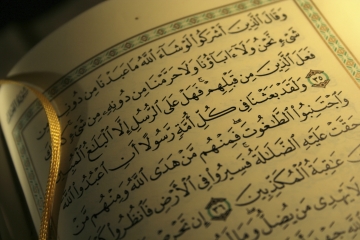 وَقَالَ الَّذِينَ أَشْرَكُوا لَوْ شَاءَ اللَّهُ مَا عَبَدْنَا مِن دُونِهِ
شَيْءٍ نَّحْنُ وَلَا ءَابَاؤُنَا وَلَا حَرَّمْنَا مِن دُونِهِ مِن شَيْءٍ
فَعَلَ الَّذِينَ مِن قَبْلِهِمْ فَهَلْ عَلَى الرُّسُلِ إِلَّا الْبَلَاغُ الْمُبِينُ ٣٥
وَلَقَدْ بَعَثْنَا فِي كُلِّ أُمَّةٍ رَّسُولًا أَنِ اعْبُدُوا اللَّهَ
وَاجْتَنِبُوا الطَّاغُوتَ فَمِنْهُم مَّنْ هَدَى اللَّهُ وَمِنْهُم مَّنْ
حَقَّتْ عَلَيْهِ الضَّلَالَةُ فَسِيرُوا فِي الْأَرْضِ فَانظُرُوا
عَاقِبَةُ الْمُكَذِّبِينَ ٣٦ إِن تَحْرِصْ
يَهْدِي مَن يُضِلُّ وَمَا لَهُم